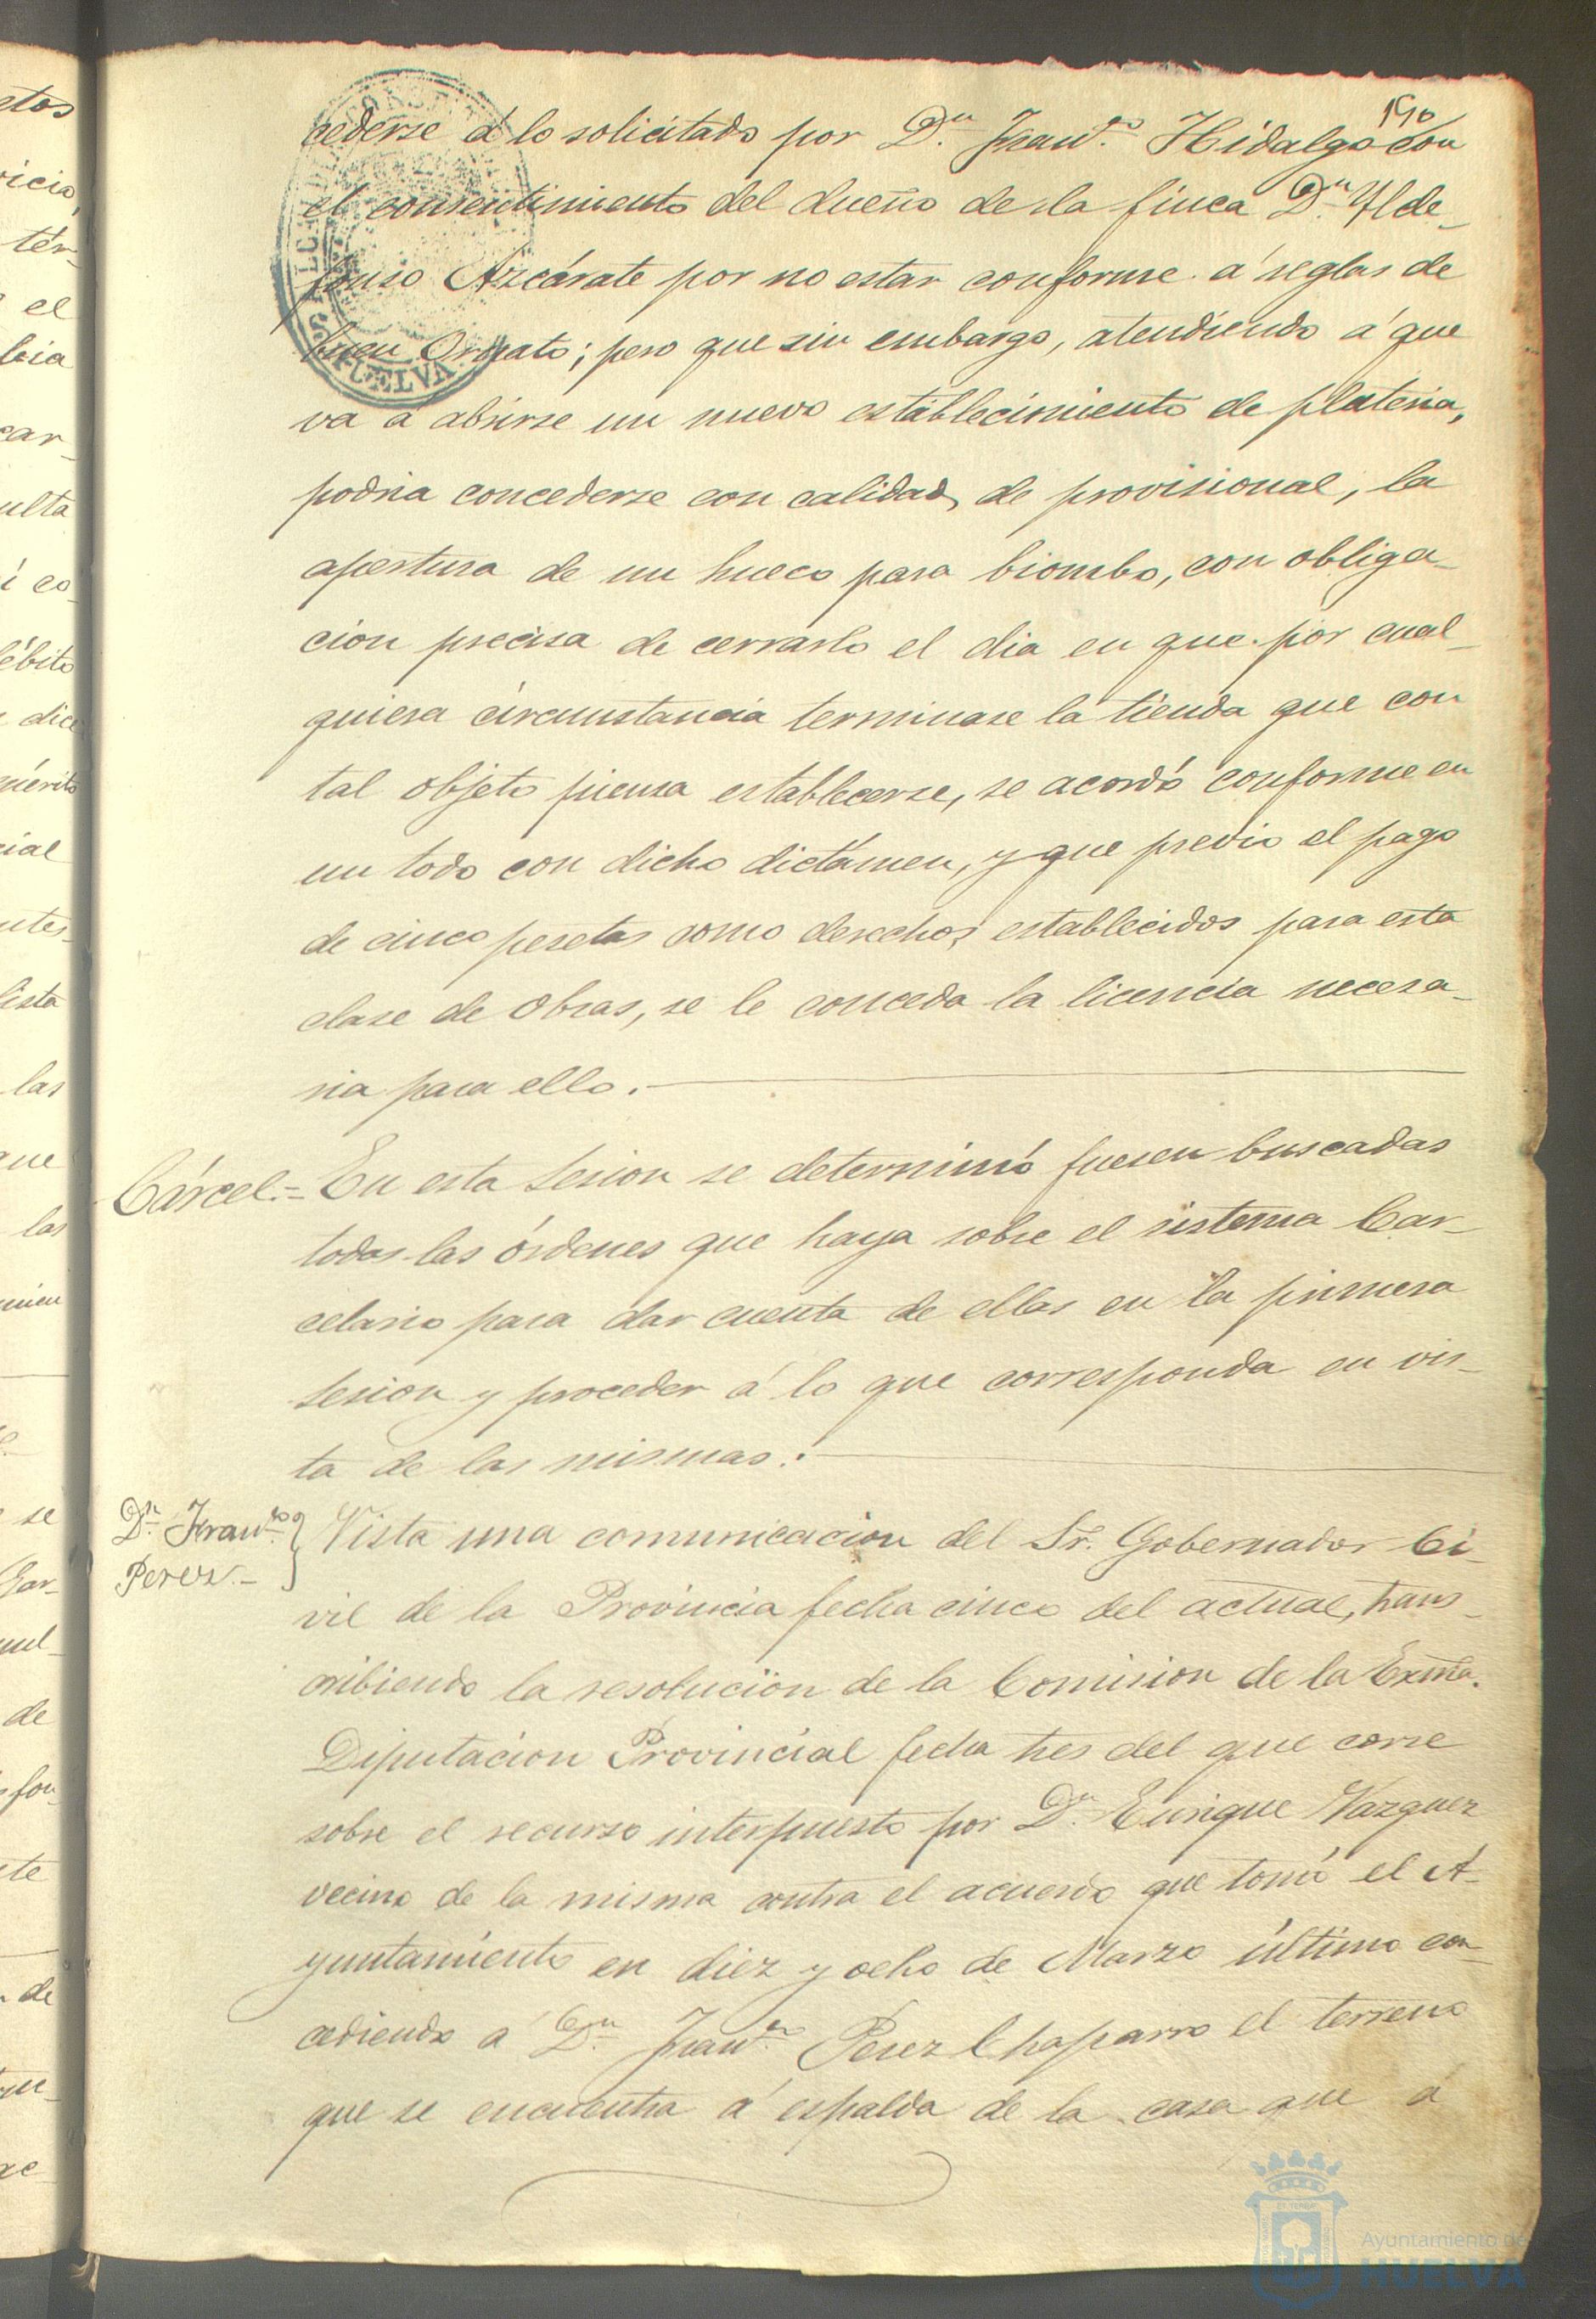 190
cederse á lo solicitado por Dn. Franco. Hidalgo con
el consentimiento del dueño de la finca Dn. Ylde-
fonso Azcárate por no estar conforme á reglas de
buen Ornato; pero que sin embargo, atendiendo á que
va á abrirse un nuevo establecimiento de plateria,
podria concederse con calidad de provisional, la
apertura de un hueco para biombo, con obliga-
cion precisa de cerrarlo el dia en que por cual-
quiera circunstancia terminase la tienda que con
tal objeto piensa establecerse, se acordó conforme en
un todo con dicho dictámen, y que previo el pago
de cinco pesetas como derechos establecidos para esta
clase de obras, se le conceda la licencia necesa-
ria para ello.
Cárcel.= En esta sesion se determinó fuesen buscadas
todas las órdenes que haya sobre el sistema Car-
celario para dar cuenta de ellas en la primera
sesion y proceder á lo que corresponda en vis-
ta de las mismas.
Dn. Franco.
Perez.-
Vista una comunicacion del Sr. Gobernador Ci-
vil de la Provincia fecha cinco del actual, trans-
cribiendo la resolucion de la Comision de la Exma.
Diputacion Provincial fecha tres del que corre
sobre el recurso interpuesto por Dn. Enrique Vazquez
vecino de la misma contra el acuerdo que tomó el A-
yuntamiento en diez y ocho de Marzo último con-
cediendo á Dn. Franco. Pérez Chaparro el terreno
que se encuentra á espalda de la casa que á
HUELVA
Ayuntamiento de
HUELVA